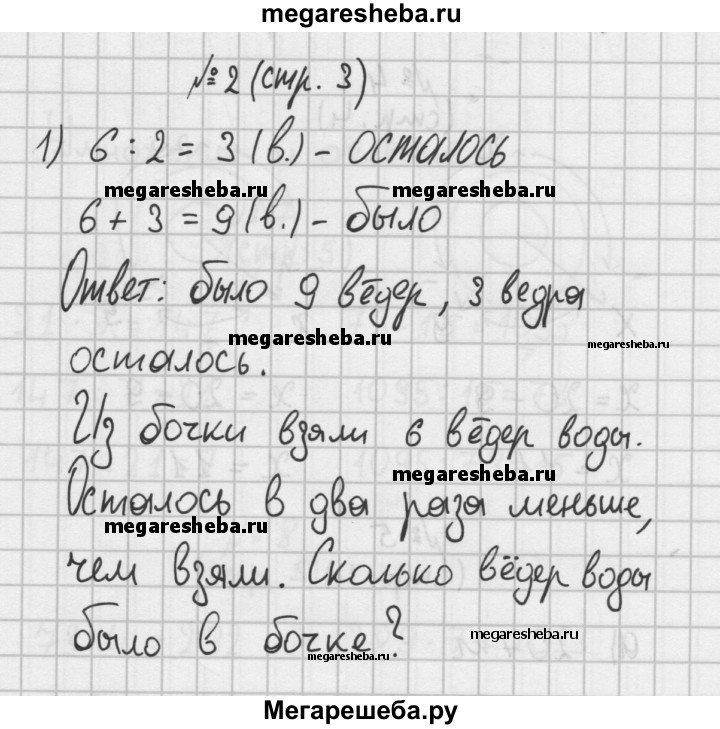 megaresheba.ru
№ 2 (стр. 3)
1) 6 : 2 = 3 (в.) - осталось
megaresheba.ru megaresheba.ru
6 + 3 = 9 (в.) - было
Ответ: было 9 вёдер, 3 ведра
megaresheba.ru megaresheba.ru
осталось.
Из бочки взяли 6 вёдер воды.
megaresheba.ru
Осталось в два раза меньше,
megaresheba.ru
чем взяли. Сколько вёдер воды
было в бочке?
megaresheba.ru
megaresheba.ru
Мегарешеба.ру